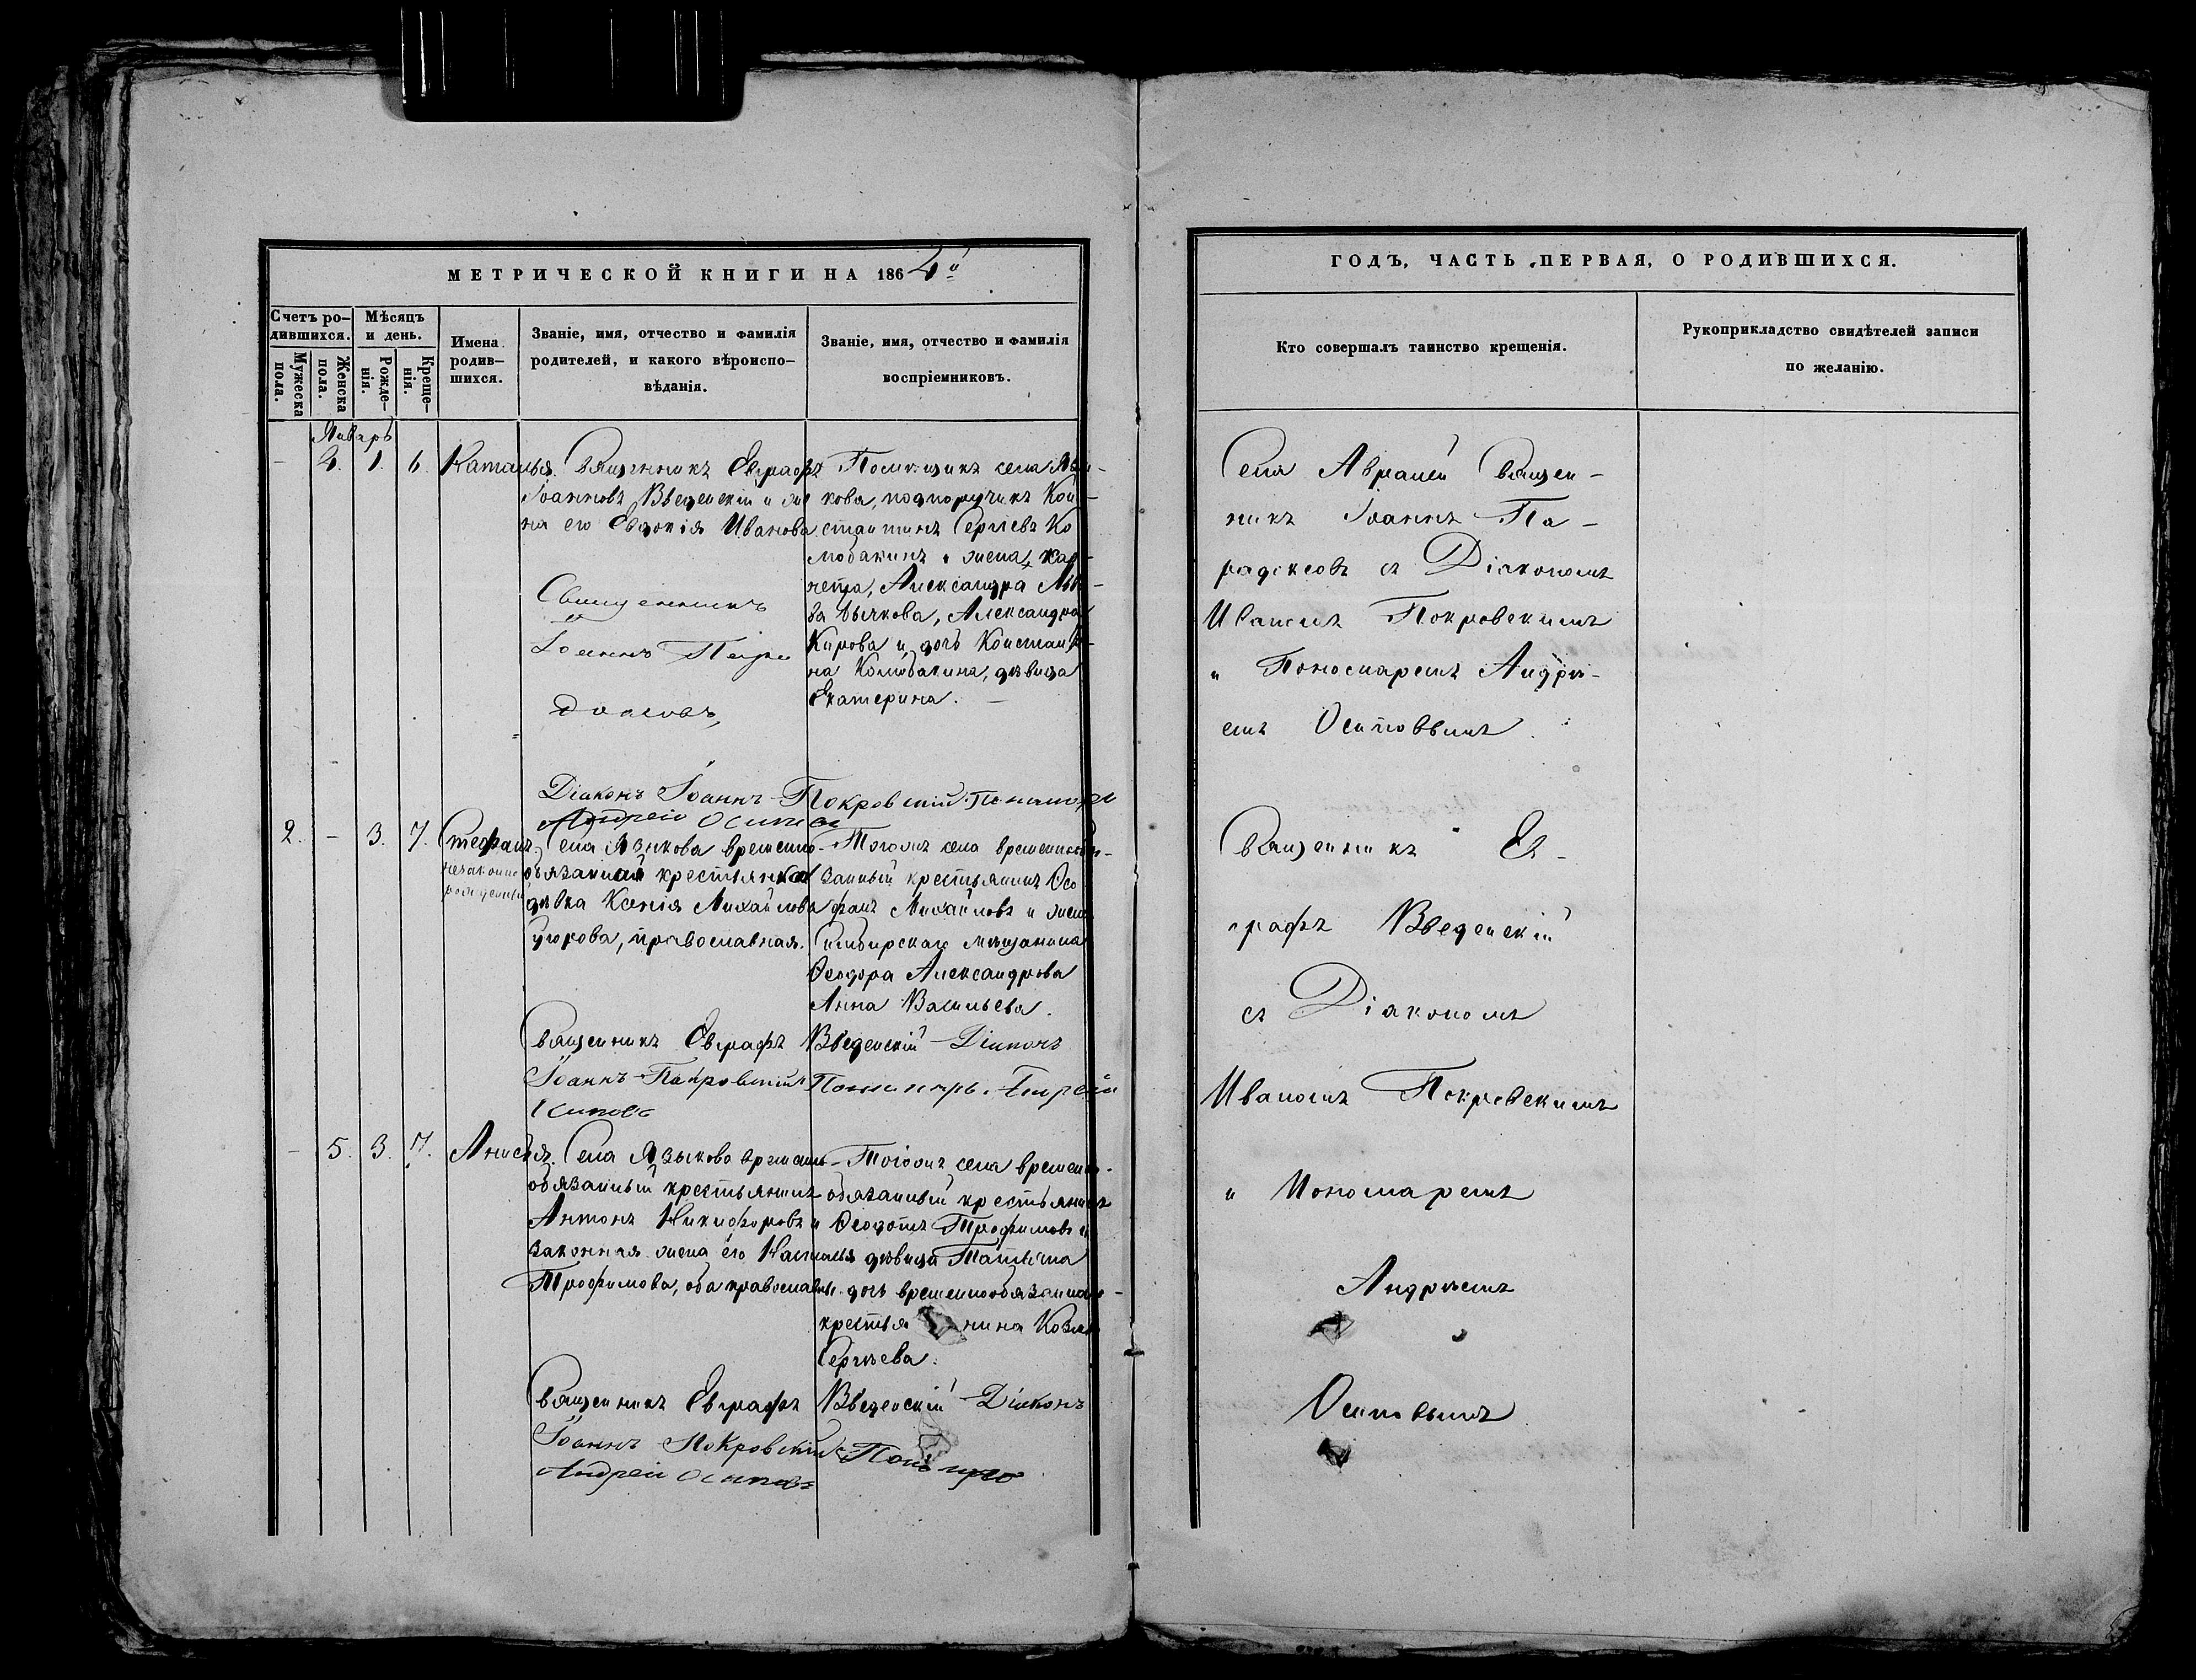 МЕТРИЧЕСКОЙ КНИГИ НА 1864й
Счетъ ро-
дившихся.
Мѣсяцъ
и день.
Мужеска
пола.
Женска
пола.
Рожде-
нія.
Креще-
нія.
Имена
родив-
шихся.
Званіе, имя, отчество и фамилія
родителей, и какого вѣроиспо-
вѣданія.
Званіе, имя, отчество и фамилія
воспріемниковъ.
Январь
4. 1. 6. Наталья.
Священникъ Евграфъ
Іоанновъ Введенскій и же
на его Евдокія Иванова
Помѣщикъ села Язы-
кова, подпоручикъ Кон-
стантинъ Сергѣевъ Ко
любакинъ и жена
Александра Льво-
ва Бычкова, Александра
Карова и дочь Констан-
на Колюбакина, дѣвица
Екатерина.
Священникъ
Іоаннъ Пара
доксовъ,
Діаконъ Іоаннъ Покровскій Понамарь
Андрей Осиповъ
2. – 3. 7. Стефанъ,
незаконно
рожденный
Села Языкова временно-
обязанная крестьянская
дѣвка Ксенія Михайлова
православная.
Тогожъ села временнообя-
занный крестьянинъ Ѳео
фанъ Михайловъ и жена
Симбирскаго мѣщанина
Ѳеодора Александрова
Анна Васильева.
Священникъ Евграфъ Введенскій Діаконъ
Іоаннъ Покровскій Понамарь Андрей
Осиповъ
– 5. 3. 7. Анисья.
Села Языкова временно-
обязанный крестьянинъ
Антонъ Никифоровъ и
законная жена его Наталья
Трофимова, оба православные.
Тогожъ села временно-
обязанный крестьянинъ
Ѳеодотъ Трофимовъ и
дѣвица Татьяна
дочь временнообязаннаго
крестьянина Козьмы
Сергѣева.
Священникъ Евграфъ Введенскій Діаконъ
Іоаннъ Покровскій Понамарь
Андрей Осиповъ
ГОДЪ, ЧАСТЬ ПЕРВАЯ, О РОДИВШИХСЯ.
Кто совершалъ таинство крещенія.
Рукоприкладство свидѣтелей записи
по желанію.
Села Аврамей Священ-
никъ Іоаннъ Па-
радоксовъ съ Діакономъ
Иваномъ Покровскимъ
и Пономаремъ Андрѣ-
емъ Осиповымъ.
Священникъ Ев-
графъ Введенскій
съ Діакономъ
Иваномъ Покровскимъ
и Пономаремъ
Андрѣемъ
Осиповымъ